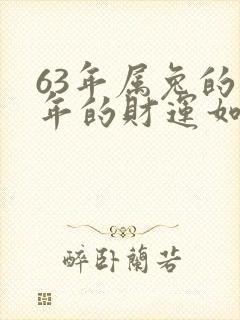 63年属兔的
年的财运如
醉卧蘭若